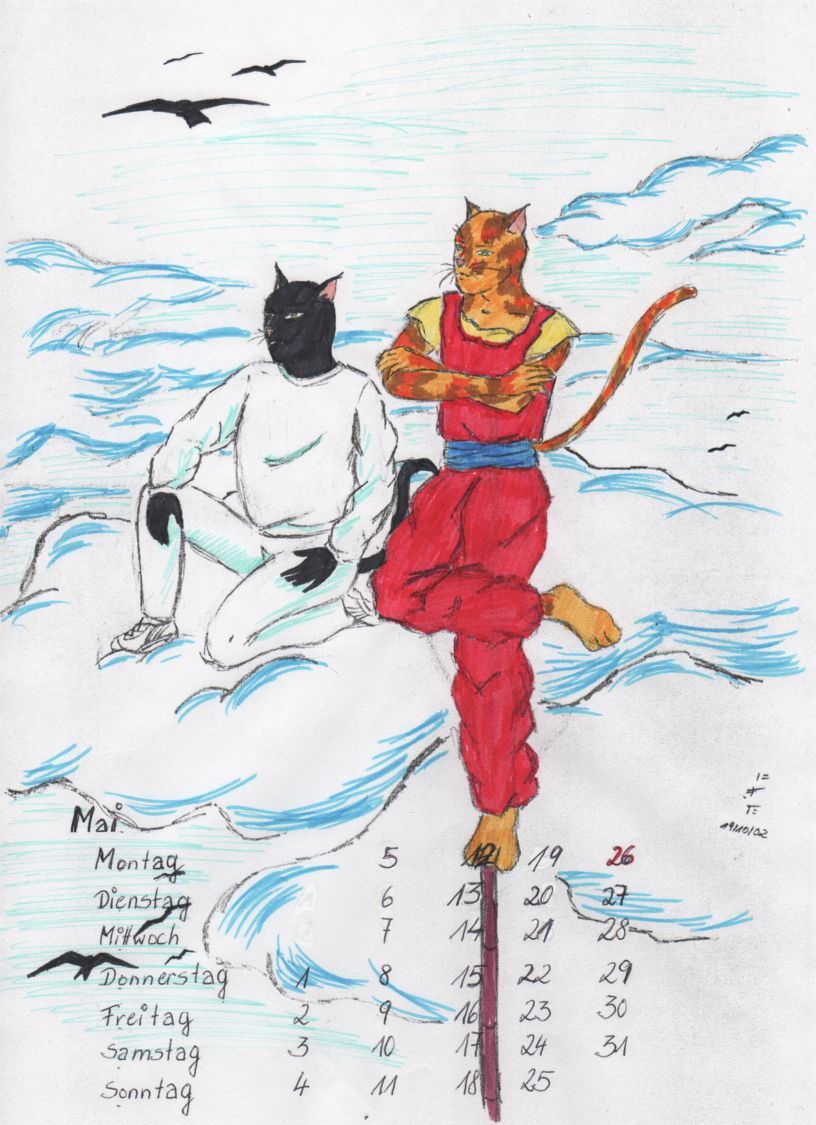 19/10/02
Mai
Montag 5 12 19 26
Dienstag 6 13 20 27
Mittwoch 7 14 21 28
Donnerstag 1 8 15 22 29
Freitag 2 9 16 23 30
Samstag 3 10 17 24 31
Sonntag 4 11 18 25